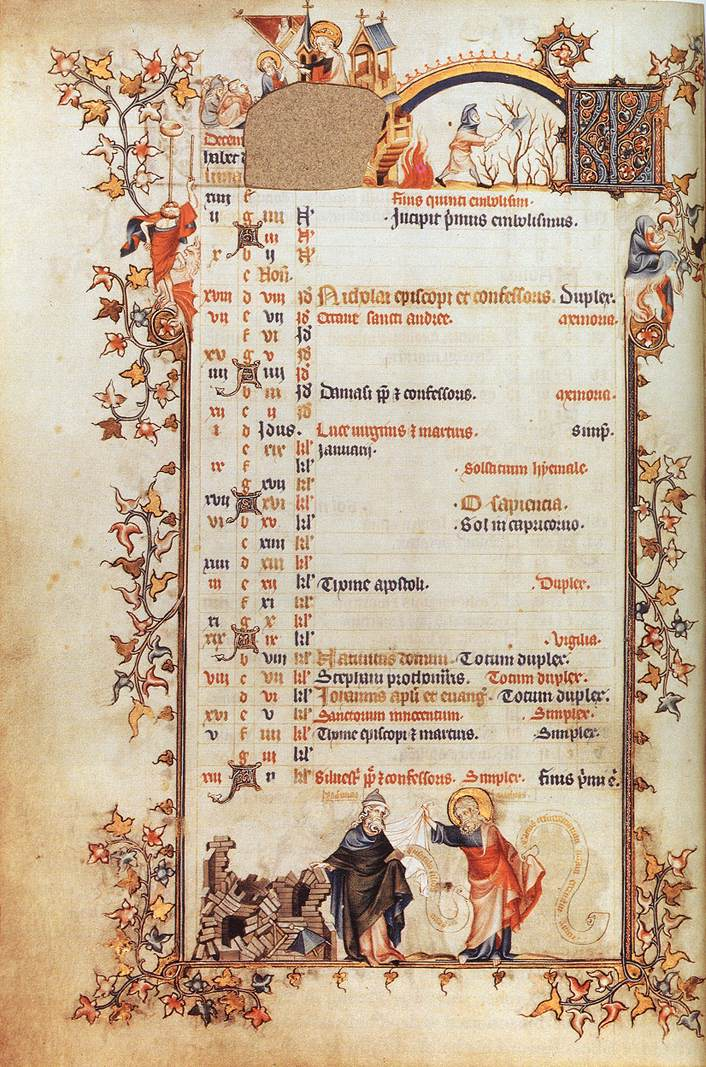 Decem
habet
luna
xiiij f finis quinti embolismi.
ij g iiij Nº Incipit primus embolismus.
A iij Nº
x b ij Nº
c Non.
xviij d viij id Nicholai episcopi et confessoris. Dupler.
vij e vij id Octave sancti andree. memoria.
f vi Id
xv g v id
iiij A iiij id
b iij Id Damasi pp̄ ⁊ confessoris. memoria.
xij c ij id
i d Idus. Lucie virginis ⁊ martiris. simp.
e xix kl' Januarij.
ix f kl' Solsticium hyemale.
g xvij kl'
xvij A xvi kl' O sapiencia.
vi b xv kl' Sol in capricorno.
c xiiij kl'
xiiij d xiij kl'
iij e xij kl' Thome apostoli. Dupler.
f xi kl'
xi g x kl'
xix A ix kl' Vigilia.
b viij kl' Nativitas domini. Totum dupler.
viij c vij kl' Stephani prothomris. Totum dupler.
d vi kl' Johannis apli et euang. Totum dupler.
xvi e v kl' Sanctorum innocentum. Simpler.
v f iiij kl' Thome episcopi ⁊ martiris. Simpler.
g iij kl'
xiij A ij kl' Silvest' pp̄ ⁊ confessoris. Simpler. finis primi e.